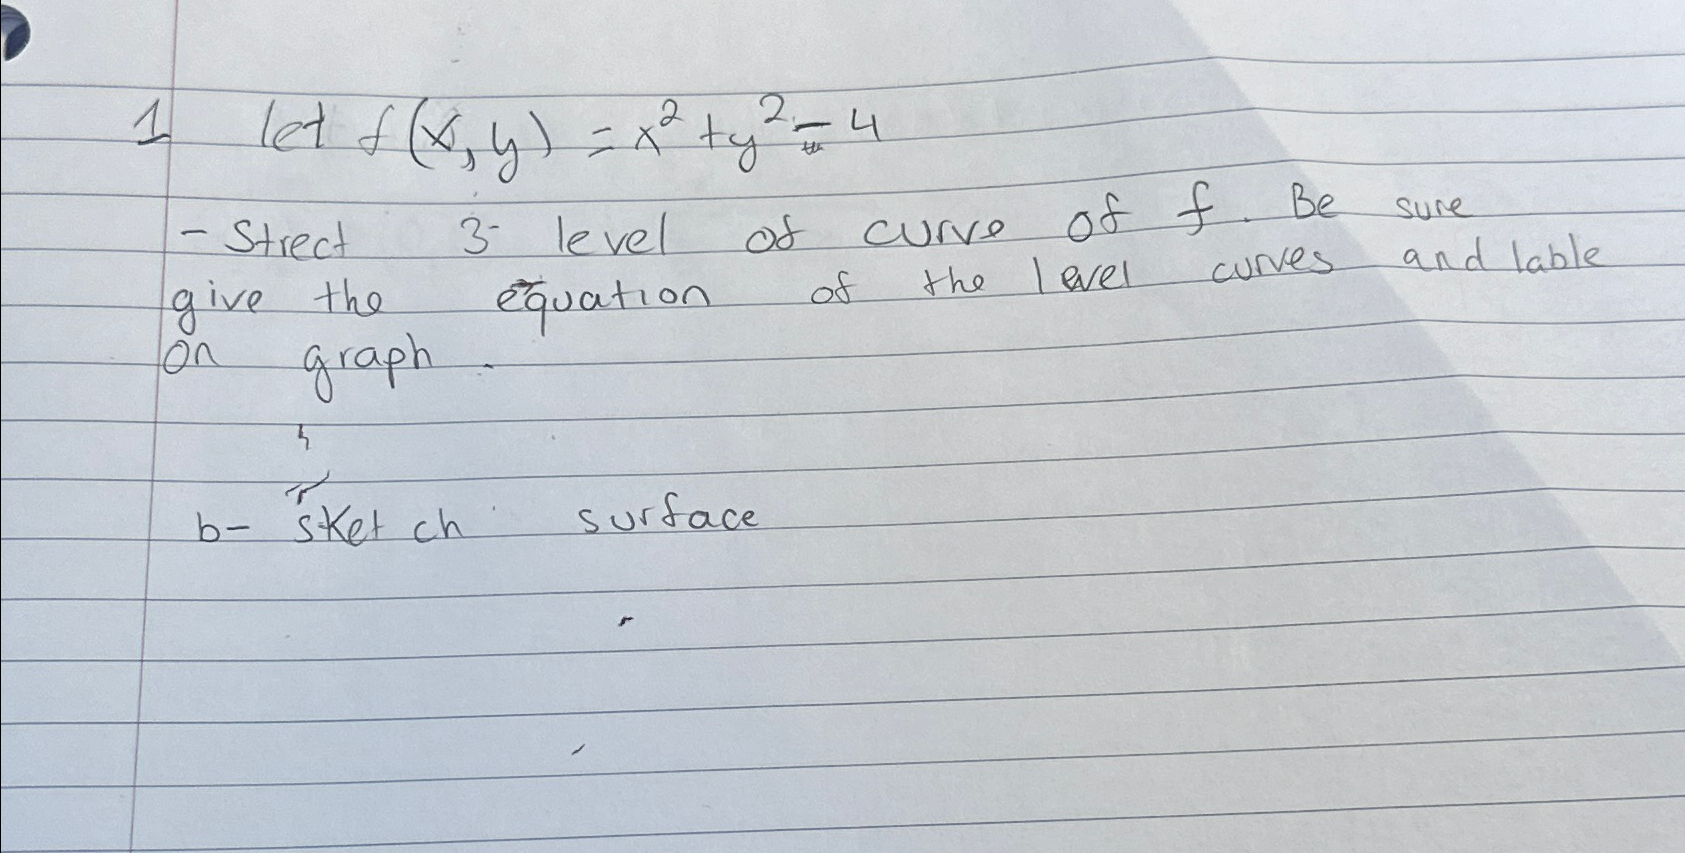 1 let f(x,y) = x² + y² - 4
- Strect 3 level of curve of f. Be sure
give the equation of the level curves and lable
on graph.
b- sketch surface